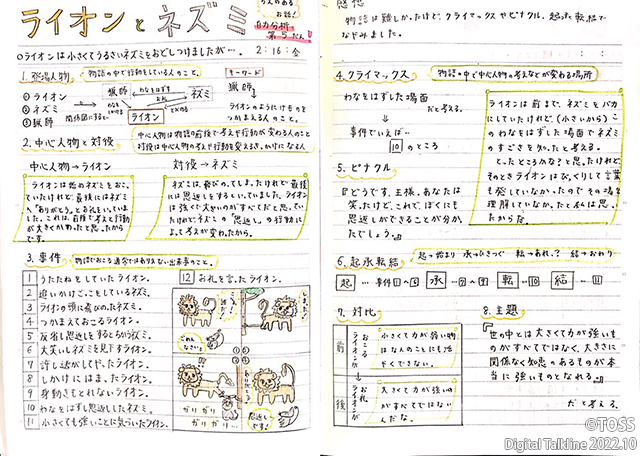 ライオンとネズミ
ちえのある
お話!
自力分析
第5だん
○ライオンは小さくてうるさいネズミをおどしつけましたが…。 2:16:金
1.登場人物
物語の中で行動をしている人のこと。
キーワード
①ライオン
②ネズミ
③猟師
猟師
ネズミ
ライオン
関係図にすると…
猟師
ライオンのようにけものを
つかまえる人のこと。
2.中心人物と対役
中心人物は物語の前後で考えや行動が変わる人のこと
対役は中心人物の考えや行動を変えるきっかけになる人
中心人物→ライオン
対役→ネズミ
ライオンは始めネズミをおこっ
ていたけれど、最後にはネズミ
へ「ありがとう。」とお礼をいっていま
した。これは、前後で考えと行動
が大きくかわったと思ったから
です。
3.事件
物語でおこる通常ではありえない出来事のこと。
1 うたたねをしていたライオン。
2 追いかけごっこをしているネズミ。
3 ライオンの頭に飛びのったネズミ。
4 つかまえておこるライオン。
5 反省し恩返しをするとちかうネズミ。
6 大笑いしネズミを見下すライオン。
7 許し逃がしてやったライオン。
8 しかけにはまったライオン。
9 身動きもとれないライオン。
10 わなをはずし恩返ししたネズミ。
11 小さくても強いことに気づいたライオン。
12 お礼を言ったライオン。
ごめんなさい!
ガリガリ
ガリガリ…
恩返し
です!
感想
物語は難しかったけど、クライマックスやピナクル、起承転結で
なやみました。
4.クライマックス
物語の中で中心人物の考えなどが変わる場所
わなをはずした場面
だと考える。
事件でいえば…
10 のところ
ライオンは前まで、ネズミをバカ
にしていたけれど、(小さいから)こ
のわなをはずした場面でネズミ
のすごさを知ったと考える。
とったところかな?と思ったけれど、
そのときライオンはびっくりして言葉
も発していなかったのでその場を
理解していなかったと私は思っ
たからだ。
5.ピナクル
『どうです、王様。あなたは
笑ったけど、これで、ぼくにも
恩返しができることが分かっ
たでしょう。』
6.起承転結
起→始まり 承→ひきつぐ 転→あれ、? 結→おわり
起 … 事件
承
転 …10
結 …11
7.対比
前
後
おこる
ライオンが
お礼
ライオンが
小さくて力が弱い物
はなんのことにも活や
くできない。
大きくて力が強いの
がすべてではない
んだな。
8.主題
『世の中とは大きくて力が強いも
のがすべてではなく、大きさに
関係なく知恵のあるものが本
当に強いものとなれる。』
だと考える。
©TOSS
Digital Talkline 2022.10